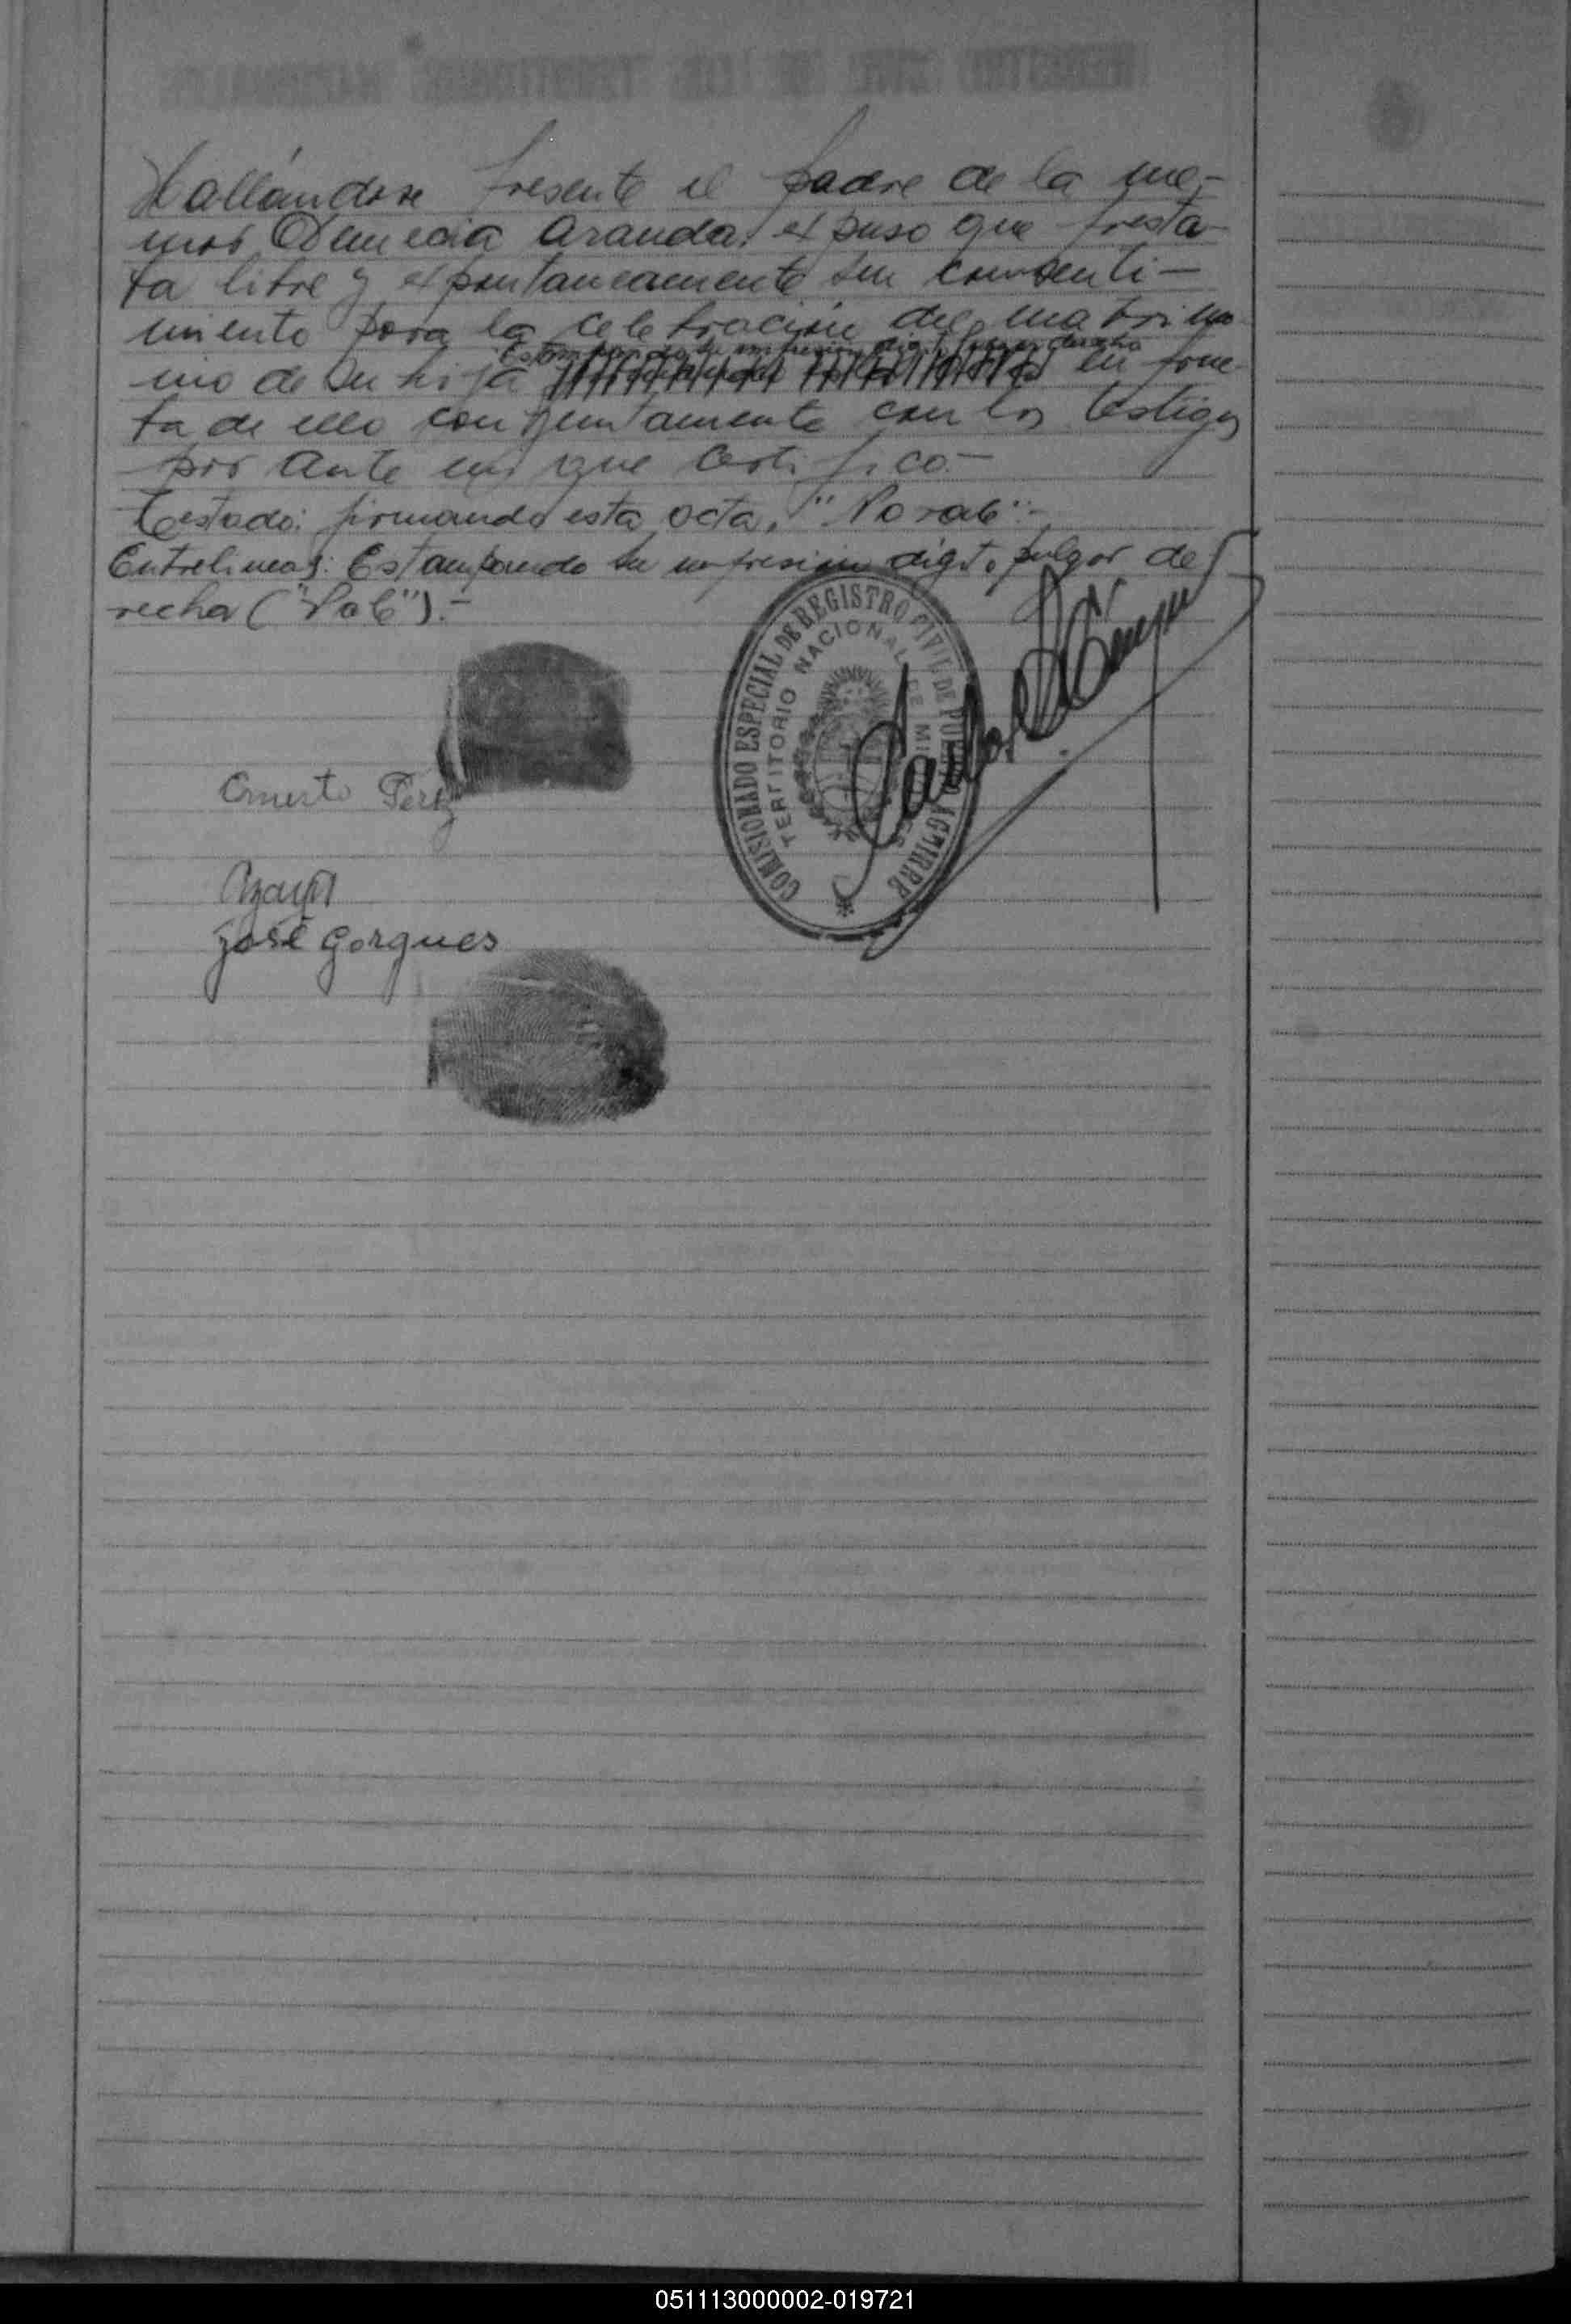 Hallándose presente el padre de la me-
nor Aranda, expuso que presta-
ba libre y expontaneamente su consenti-
miento para la celebracion del matrimo
Estampando su impresion digit. pulgar derecha
nio de su hija en prue
ba de ello conjuntamente con los testigos
por ante mi que certifico.-
Testado: firmando esta acta, "No vale":-
Entrelineas: Estampando su impresion digit. pulgar de
recha ("Vale").-
COMISIONADO ESPECIAL DE REGISTRO CIVIL DE PUERTO AGUIRRE
TERRITORIO NACIONAL DE MISIONES
Ernesto Perez
José Gorgues
051113000002-019721